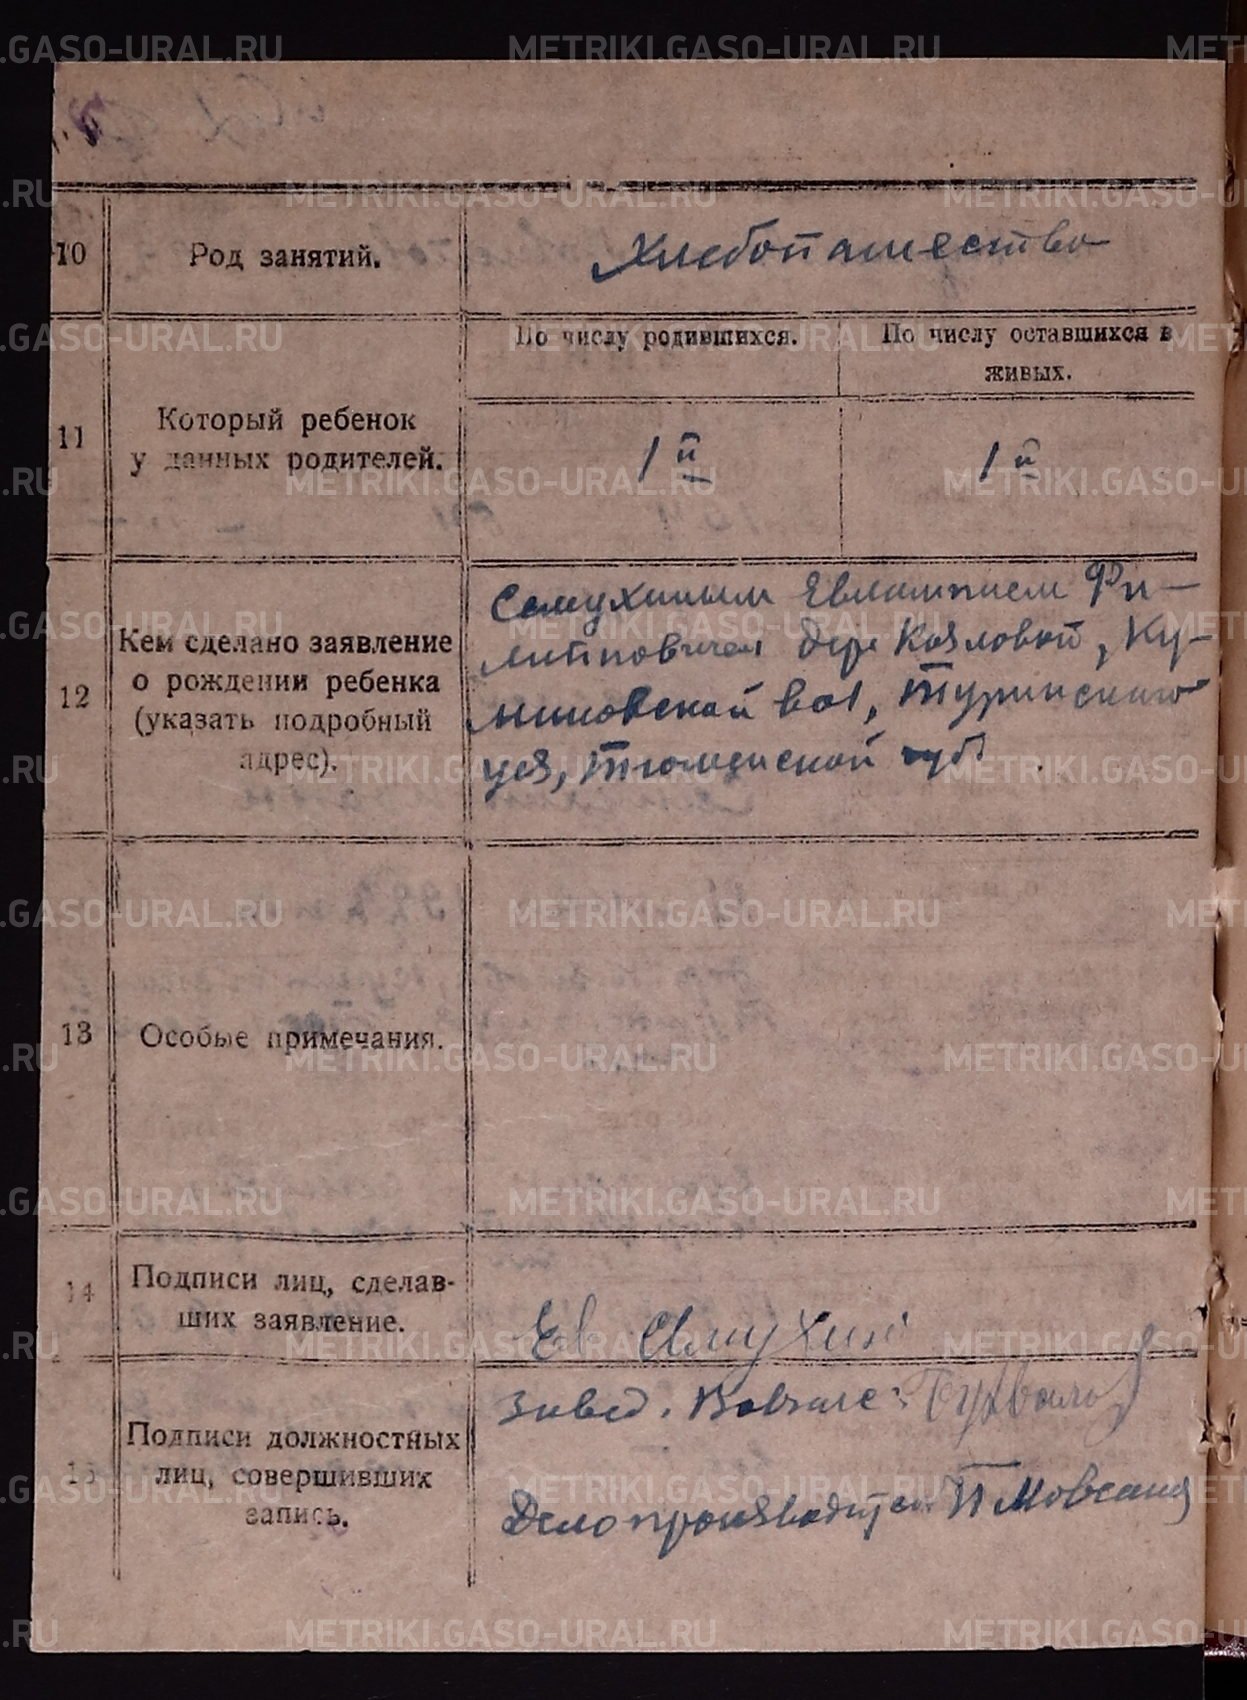 10
Род занятий.
Хлебопашество
11
Который ребенок
у данных родителей.
По числу родившихся.
По числу оставшихся в
живых.
1й
1й
12
Кем сделано заявление
о рождении ребенка
(указать подробный
адрес).
Семухиным Евлампием Фи-
липповичем дер Козловой, Ку-
миновской вол, Туринского
уез, Тюменской губ
13
Особые примечания.
14
Подписи лиц, сделав-
ших заявление.
Ев Семухин
15
Подписи должностных
лиц, совершивших
запись.
Завед.
Делопроизводител П
METRIKI.GASO-URAL.RU